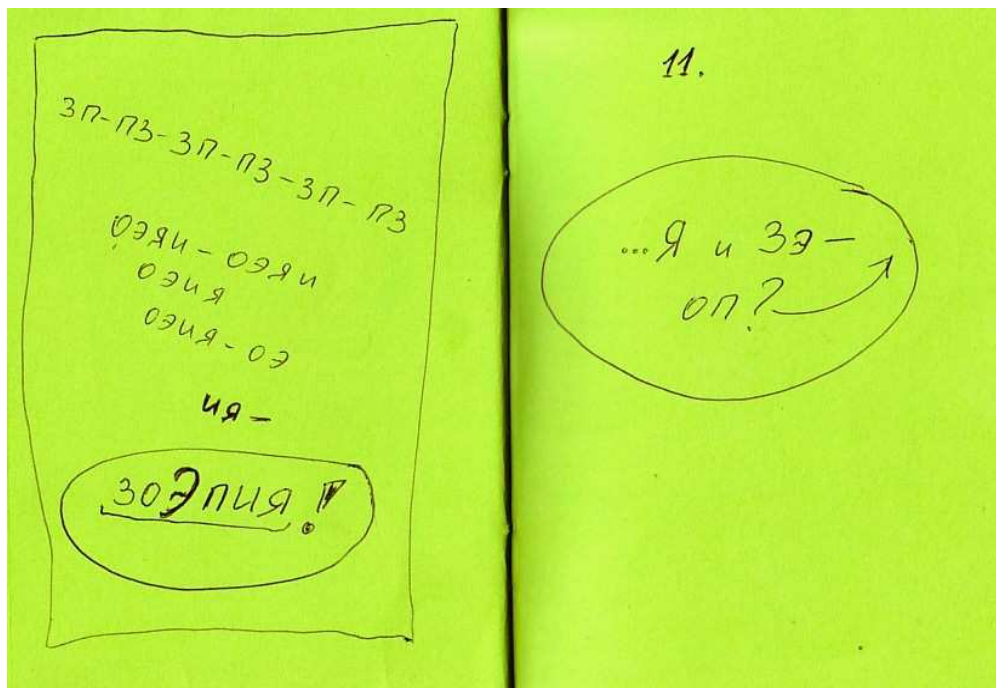 ЗП-ПЗ-ЗП-ПЗ-ЗП-ПЗ
ОЭЯИ-ОЭЯИ
ОЭИЯ
ОЭИЯ-ОЭ
ИЯ-
ЗОЭПИЯ!
11.
...Я и ЗЭ-
ОП?